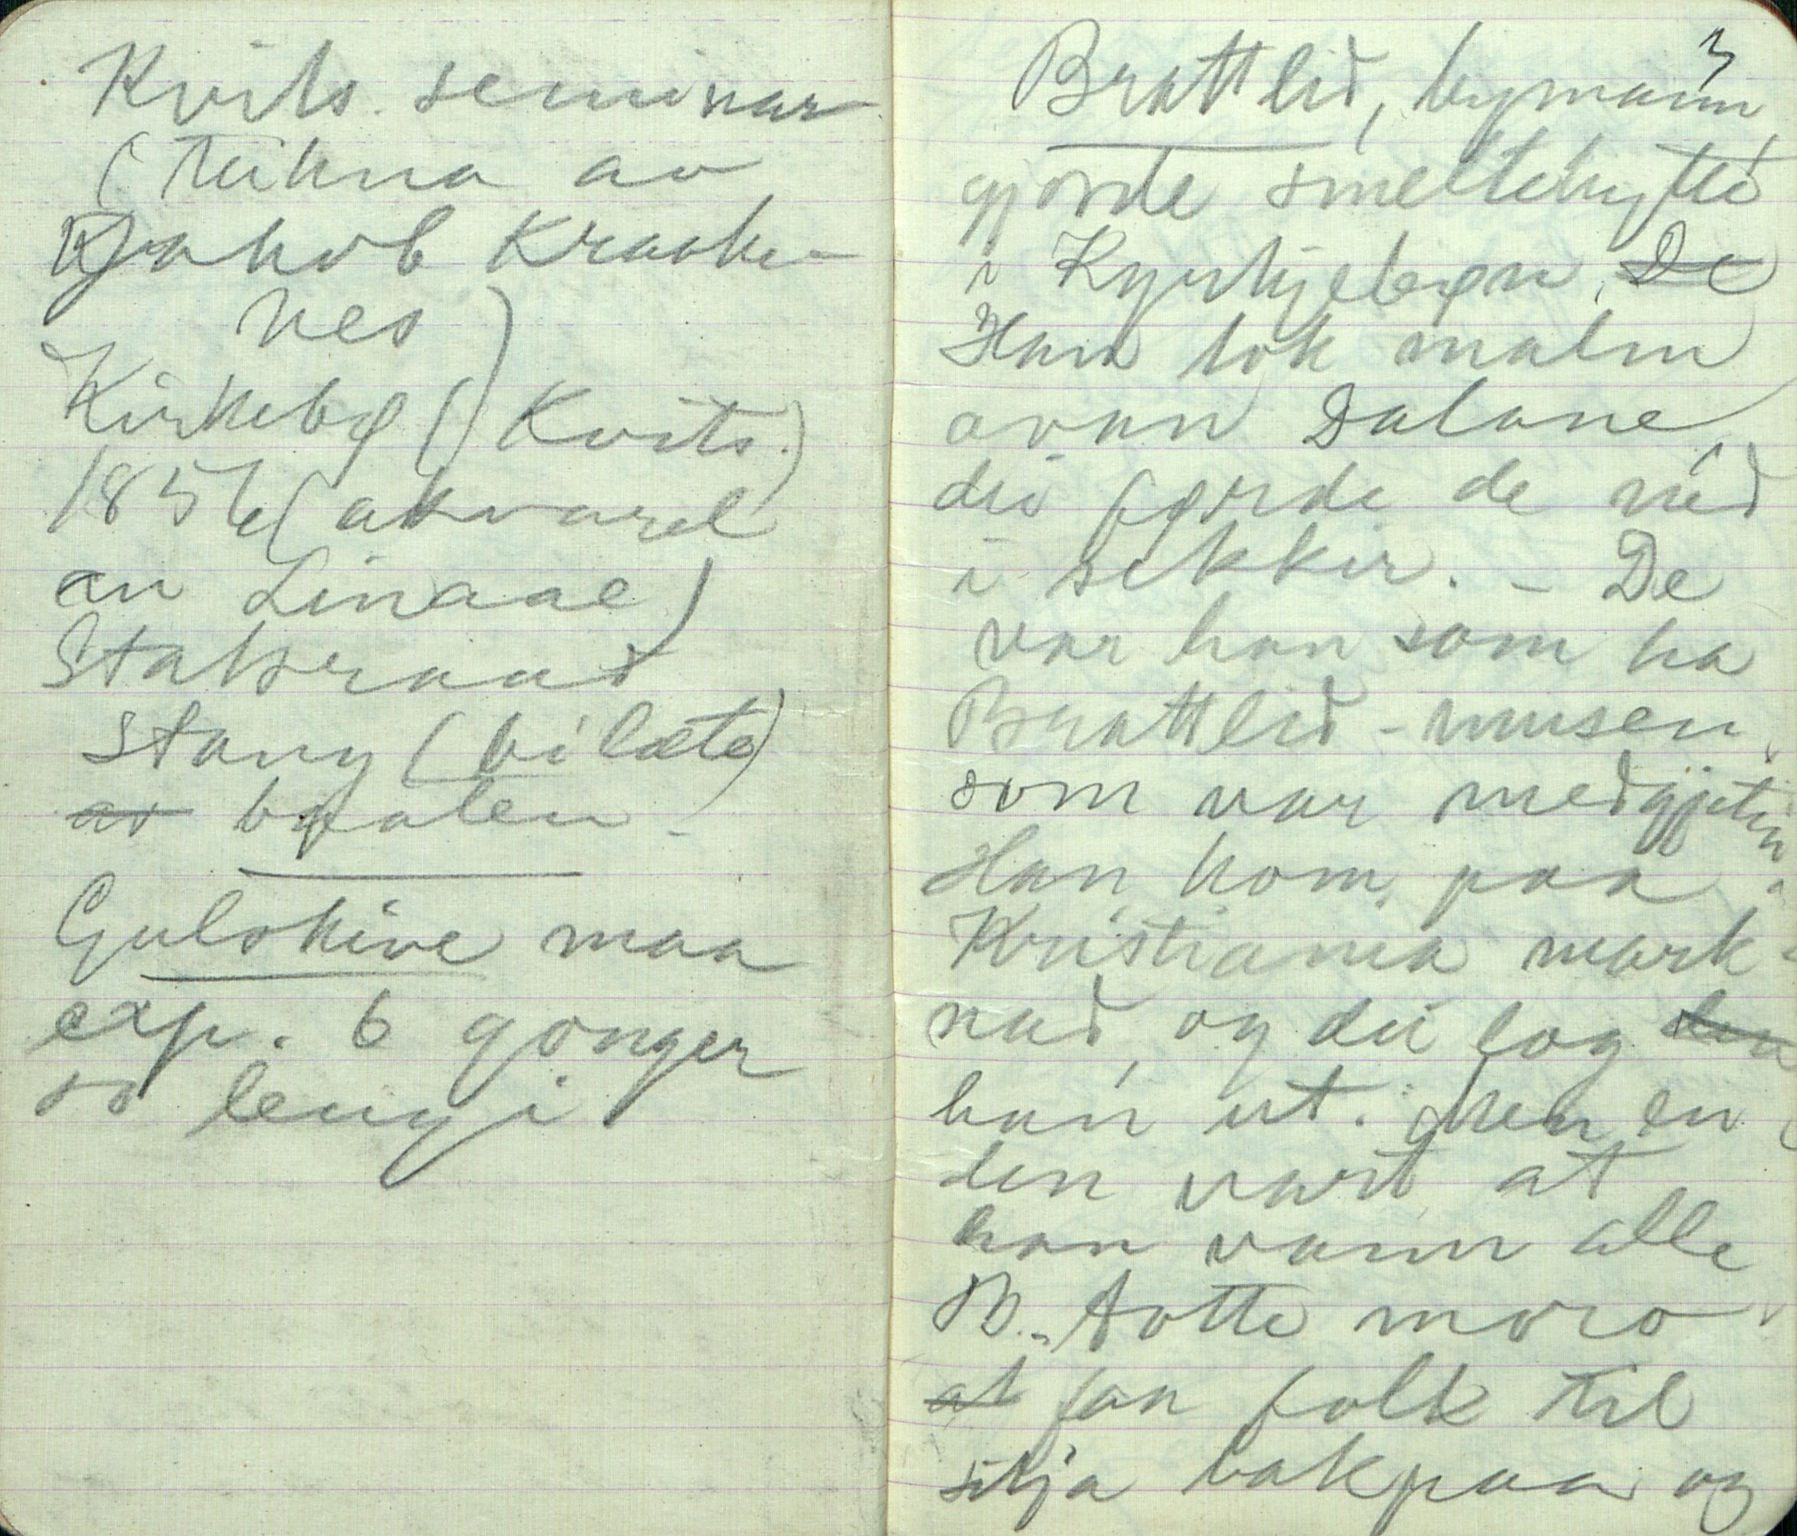 Kvits. seminar
(Teikna av
Jakob Kraake-
nes)
Kirkebø (Kvits.)
1856 (akvarel
an Linaae)
Statsraad
Stang (bilæte)
av bøaten.
Gulskive maa
exp. 6 gonger
so lengi
3
Brattlid, bymann,
gjorde smeltehytte
i Kyrkjebøn. De
Han tok malm
ovan Dalane,
dei førde de néd
i sekkir. - De
var han som ha
Brattlid-musen
som var medgjetin
Han kom paa
Kristiania mark-
nad, og dei log
han ut. Men en
den vart at
han vann alle
B. totte moro
at faa folk til
sitja bakpaa og